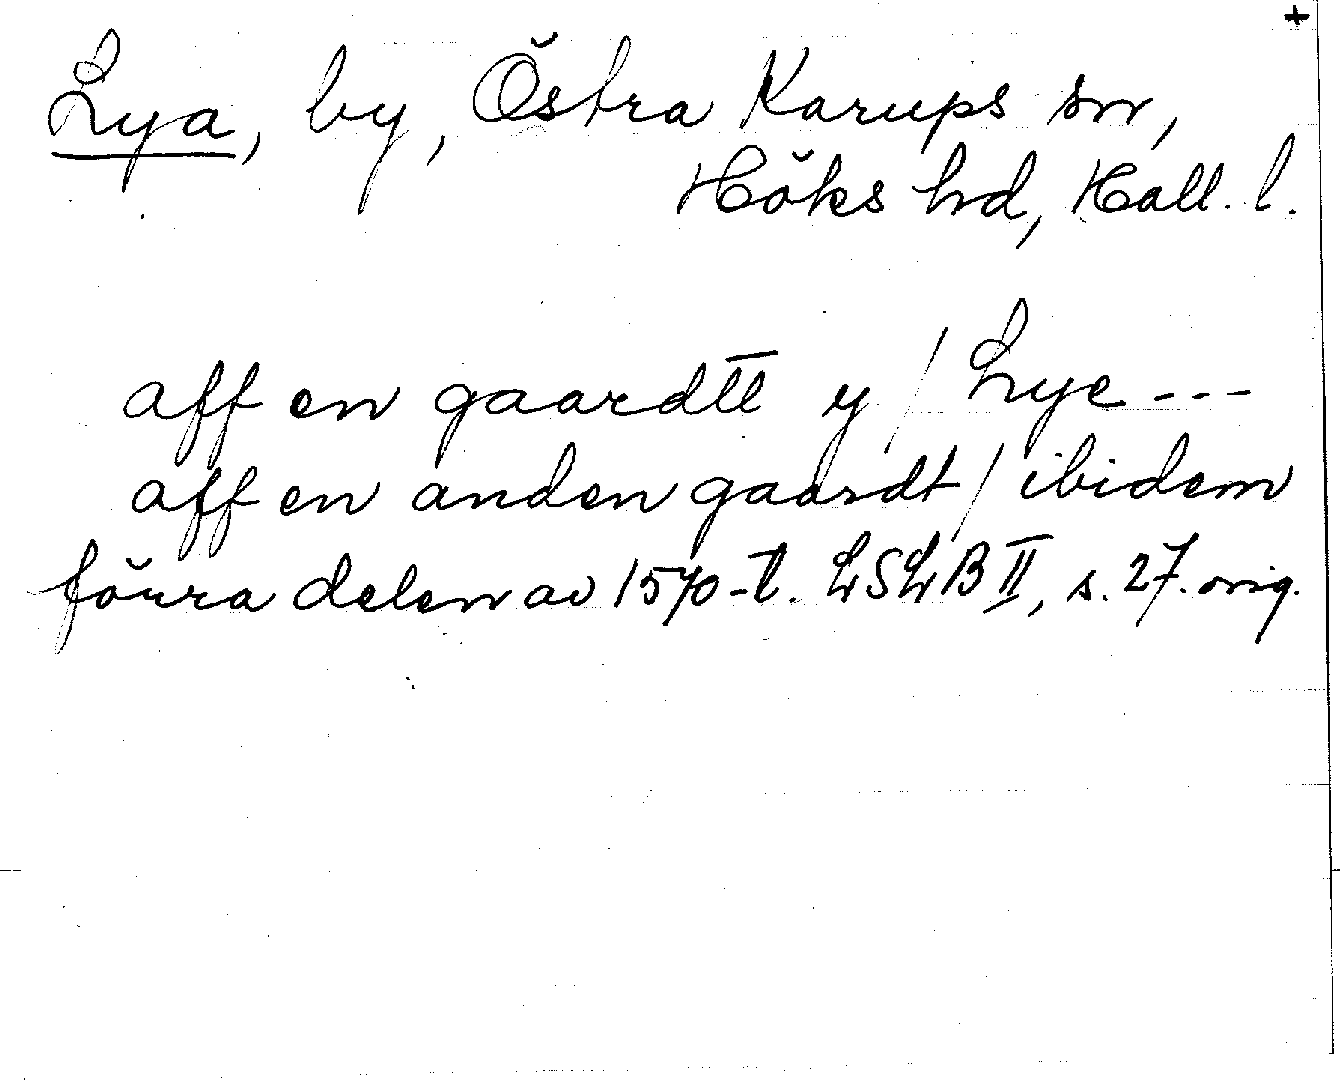 +
Lya, by, Östra Karups sn,
Höks hd, Hall. l.
aff en gaardtt y / Lye ---
aff en anden gaardt / ibidem
förra delen av 1570-t. LSLB II, s. 27. orig.